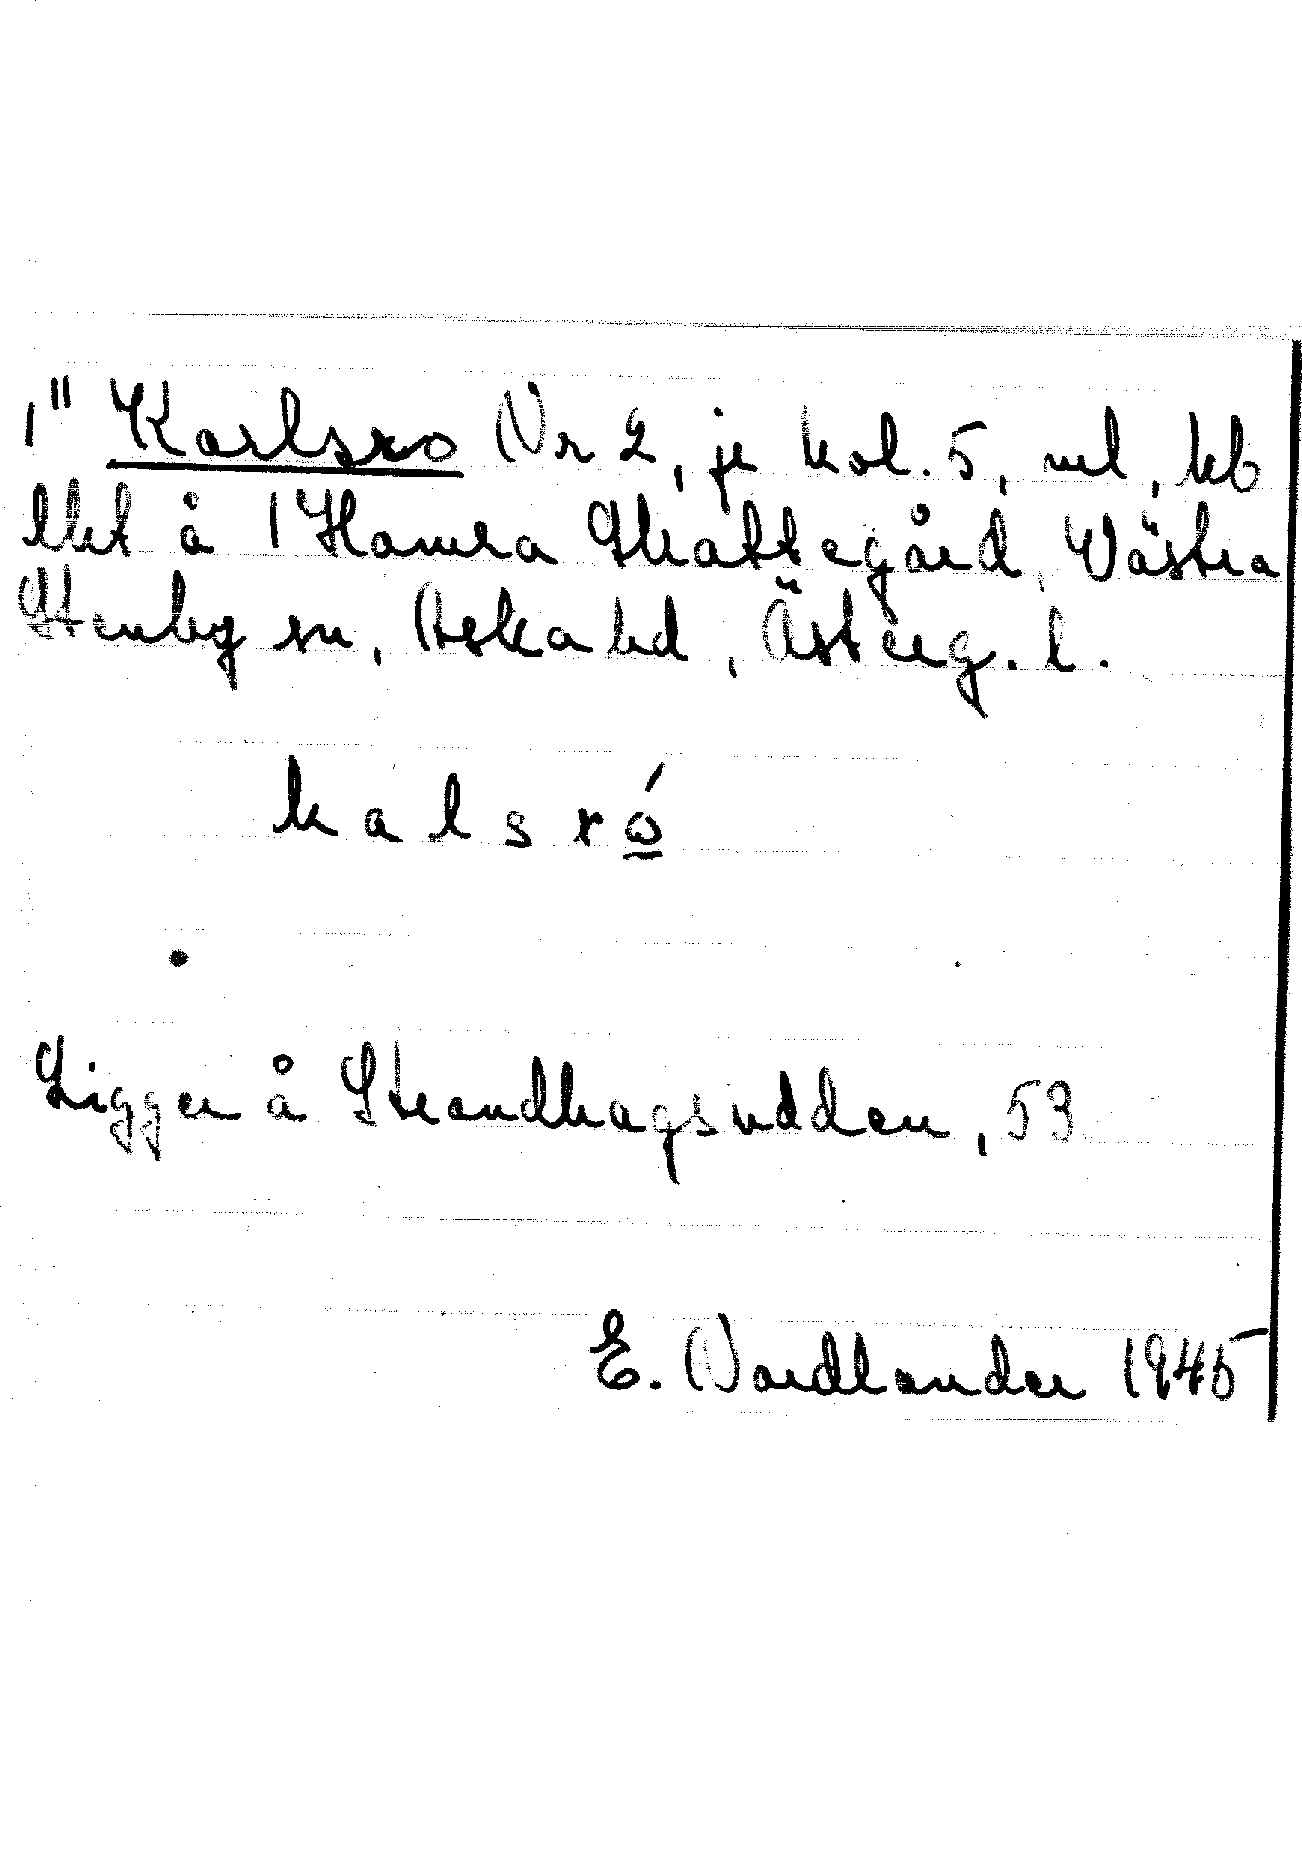 1" Karlsro Nr 2, je kol. 5, ml, kb
lht å 1 Hamra Skattegård, Västra
Stenby sn, Aska hd, Österg. l.
k a l s r ó
Ligger å Strandhagsudden, 53
E. Nordlander 1945